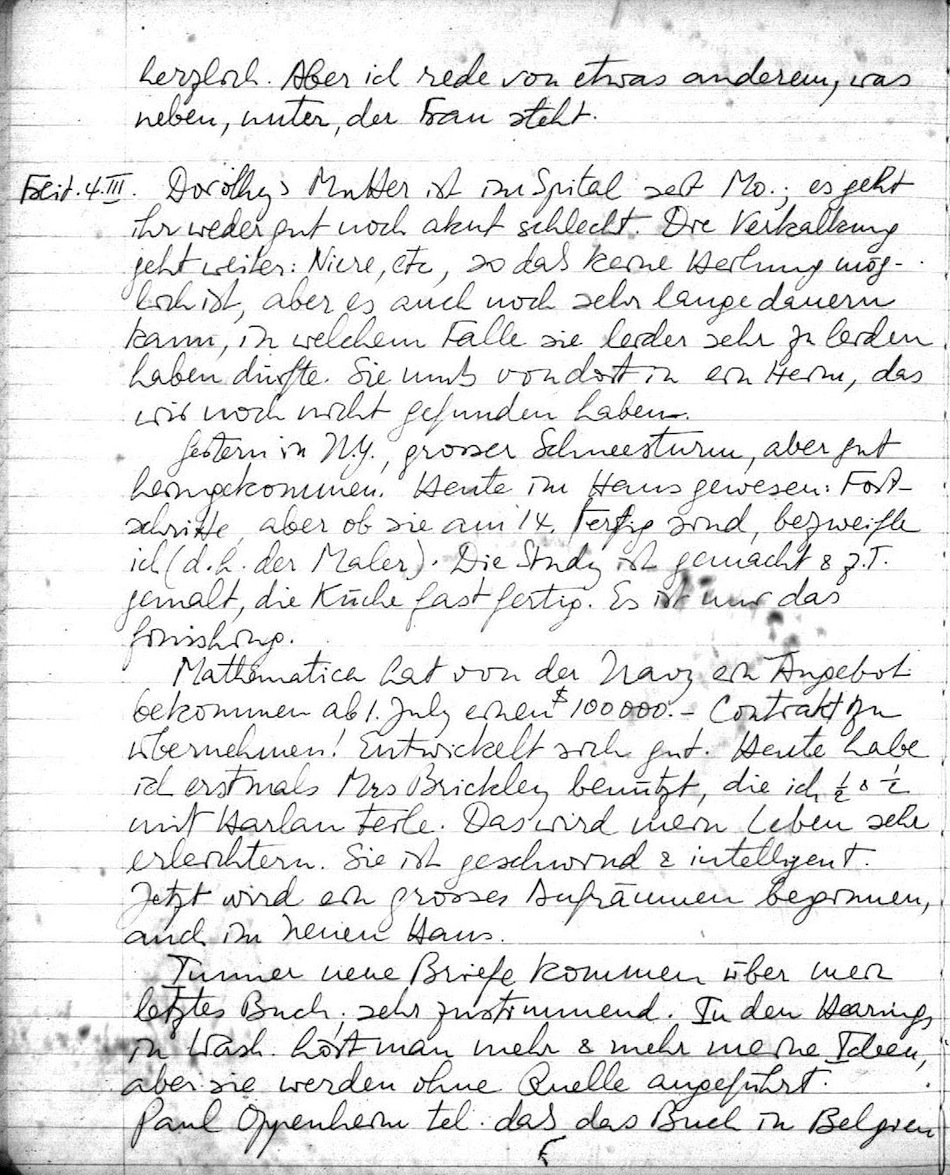 herzlich. Aber ich rede von etwas anderem, was
neben, unter, der Frau steht.
Freit. 4.III. Dorothys Mutter ist im Spital seit Mo.; es geht
ihr weder gut noch akut schlecht. Die Verkalkung
geht weiter: Niere, etc, so daß keine Heilung mög-
lich ist, aber es auch noch sehr lange dauern
kann, in welchem Falle sie leider sehr zu leiden
haben dürfte. Sie muß von dort in ein Heim, das
wir noch nicht gefunden haben.
Gestern in N.Y., grosser Schneesturm, aber gut
heimgekommen. Heute im Haus gewesen: Fort-
schritte, aber ob sie am 14. fertig sind, bezweifle
ich (d.h. der Maler). Die Study ist gemacht & z.T.
gemalt, die Küche fast fertig. Es ist nur das
finishing.
Mathematica hat von der Navy ein Angebot
bekommen ab 1. July einen $ 100000.– Contrakt zu
übernehmen! Entwickelt sich gut. Heute habe
ich erstmals Mrs Brickley benützt, die ich ½ & ½
mit Harlan teile. Das wird mein Leben sehr
erleichtern. Sie ist geschwind & intelligent.
Jetzt wird ein grosses Aufräumen beginnen,
auch im neuen Haus.
Immer neue Briefe kommen über mein
letztes Buch, sehr zustimmend. In den Hearings
in Wash. hört man mehr & mehr meine Ideen,
aber sie werden ohne Quelle angeführt.
Paul Oppenheim tel. daß das Buch in Belgien